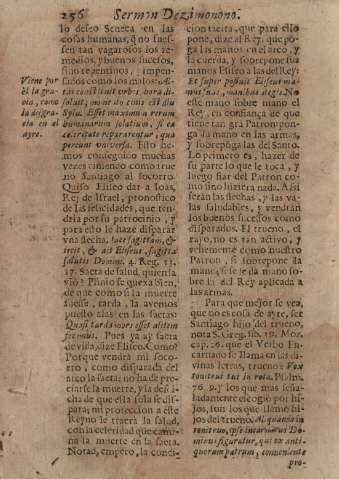 256 Sermon Dezimonono.
lo deseo Seneca en las
cosas humanas, q̃ no fues-
sen tan vagarosos los re-
medios, y buenos sucesos,
sino repentinos, y impen-
sados como los malos.
stas constituit vrbes hora di-
soluit; momento cinis est diu
Sylva. Esset maximum rerum
humanarum solatium, si ea
celeritate repararentur, qua
pereunt vniversa. Esto he-
mos conseguido muchas
vezes viniendo como true
no Santiago al socorro.
Quiso Eliseo dar a Ioas,
Rey de Israel, pronostico
de las felicidades, que ten-
dria por su patrocinio, y
para esto le haze disparar
vna flecha, Iace sagittam, &
iecit, & ait Eliseus, sagitta
salutis Domini. 4. Reg. 13.
17. Saeta de salud, quien la
vio? Plinio se quexa bien,
de que como si la muerte
fuesse tarda, la avemos
puesto alas en las saetas:
Quasi tarda mors esset alitem
fecimus. Pues ya ay saeta
de vida, dize Eliseo. Como?
Porque vendrá mi soco-
rro, como disparada del
nico la saeta: no ha de pre-
ciarse la muerte, y la desdi-
cha de que esta sola se dis-
para; mi proteccion a este
Reyno le traerá la salud,
con la celeridad que cami-
na la muerte en la saeta.
Notad, empero, la condi-
Viene por
bl la gra-
cia, como
la desgra-
cia en el
ayre.
cion tacita, que para esso
pone, dize al Rey: que pō-
ga las manos en el arco, y
la cuerda, y sobrepone sus
manos Eliseo a las del Rey:
Et super posuit Eliseus ma-
nus suas, manibus Regis. No
este mano sobre mano el
Rey, en confiança de que
tiene tan grã Patron: pon-
ga la mano en las armas,
y sobrepondrála su Santo.
Lo primero es, hazer de
su parte lo que le toca, y
luego fiar del Patron como
sino hiziera nada. Assi
serán las flechas, y las va-
las saludables, y vendrán
los buenos sucessos como
disparados. El trueno, el
rayo, no es tan activo, y
vehemente como nuestro
Patron, si sobrepone la
mano; si se le dá mano so-
bre la del Rey aplicada a
las armas.
Para que mejor se vea,
que no es cosa de ayre, ser
Santiago hijo del trueno,
nota S. Greg. lib. 19. Mor.
cap. 16. que el Verbo En-
carnado se llama en las di-
vinas letras, trueno: Vox
tonitrui tui in rota. Psalm.
76. 9. y los que mas seña-
ladamente eligió por hi-
jos, son los que llamó hi-
jos del trueno. Aliquando in
tonitruo, ipse incarnatus Do-
minus figuratur, qui ex anti-
quorum patrum, conveniente
pro-